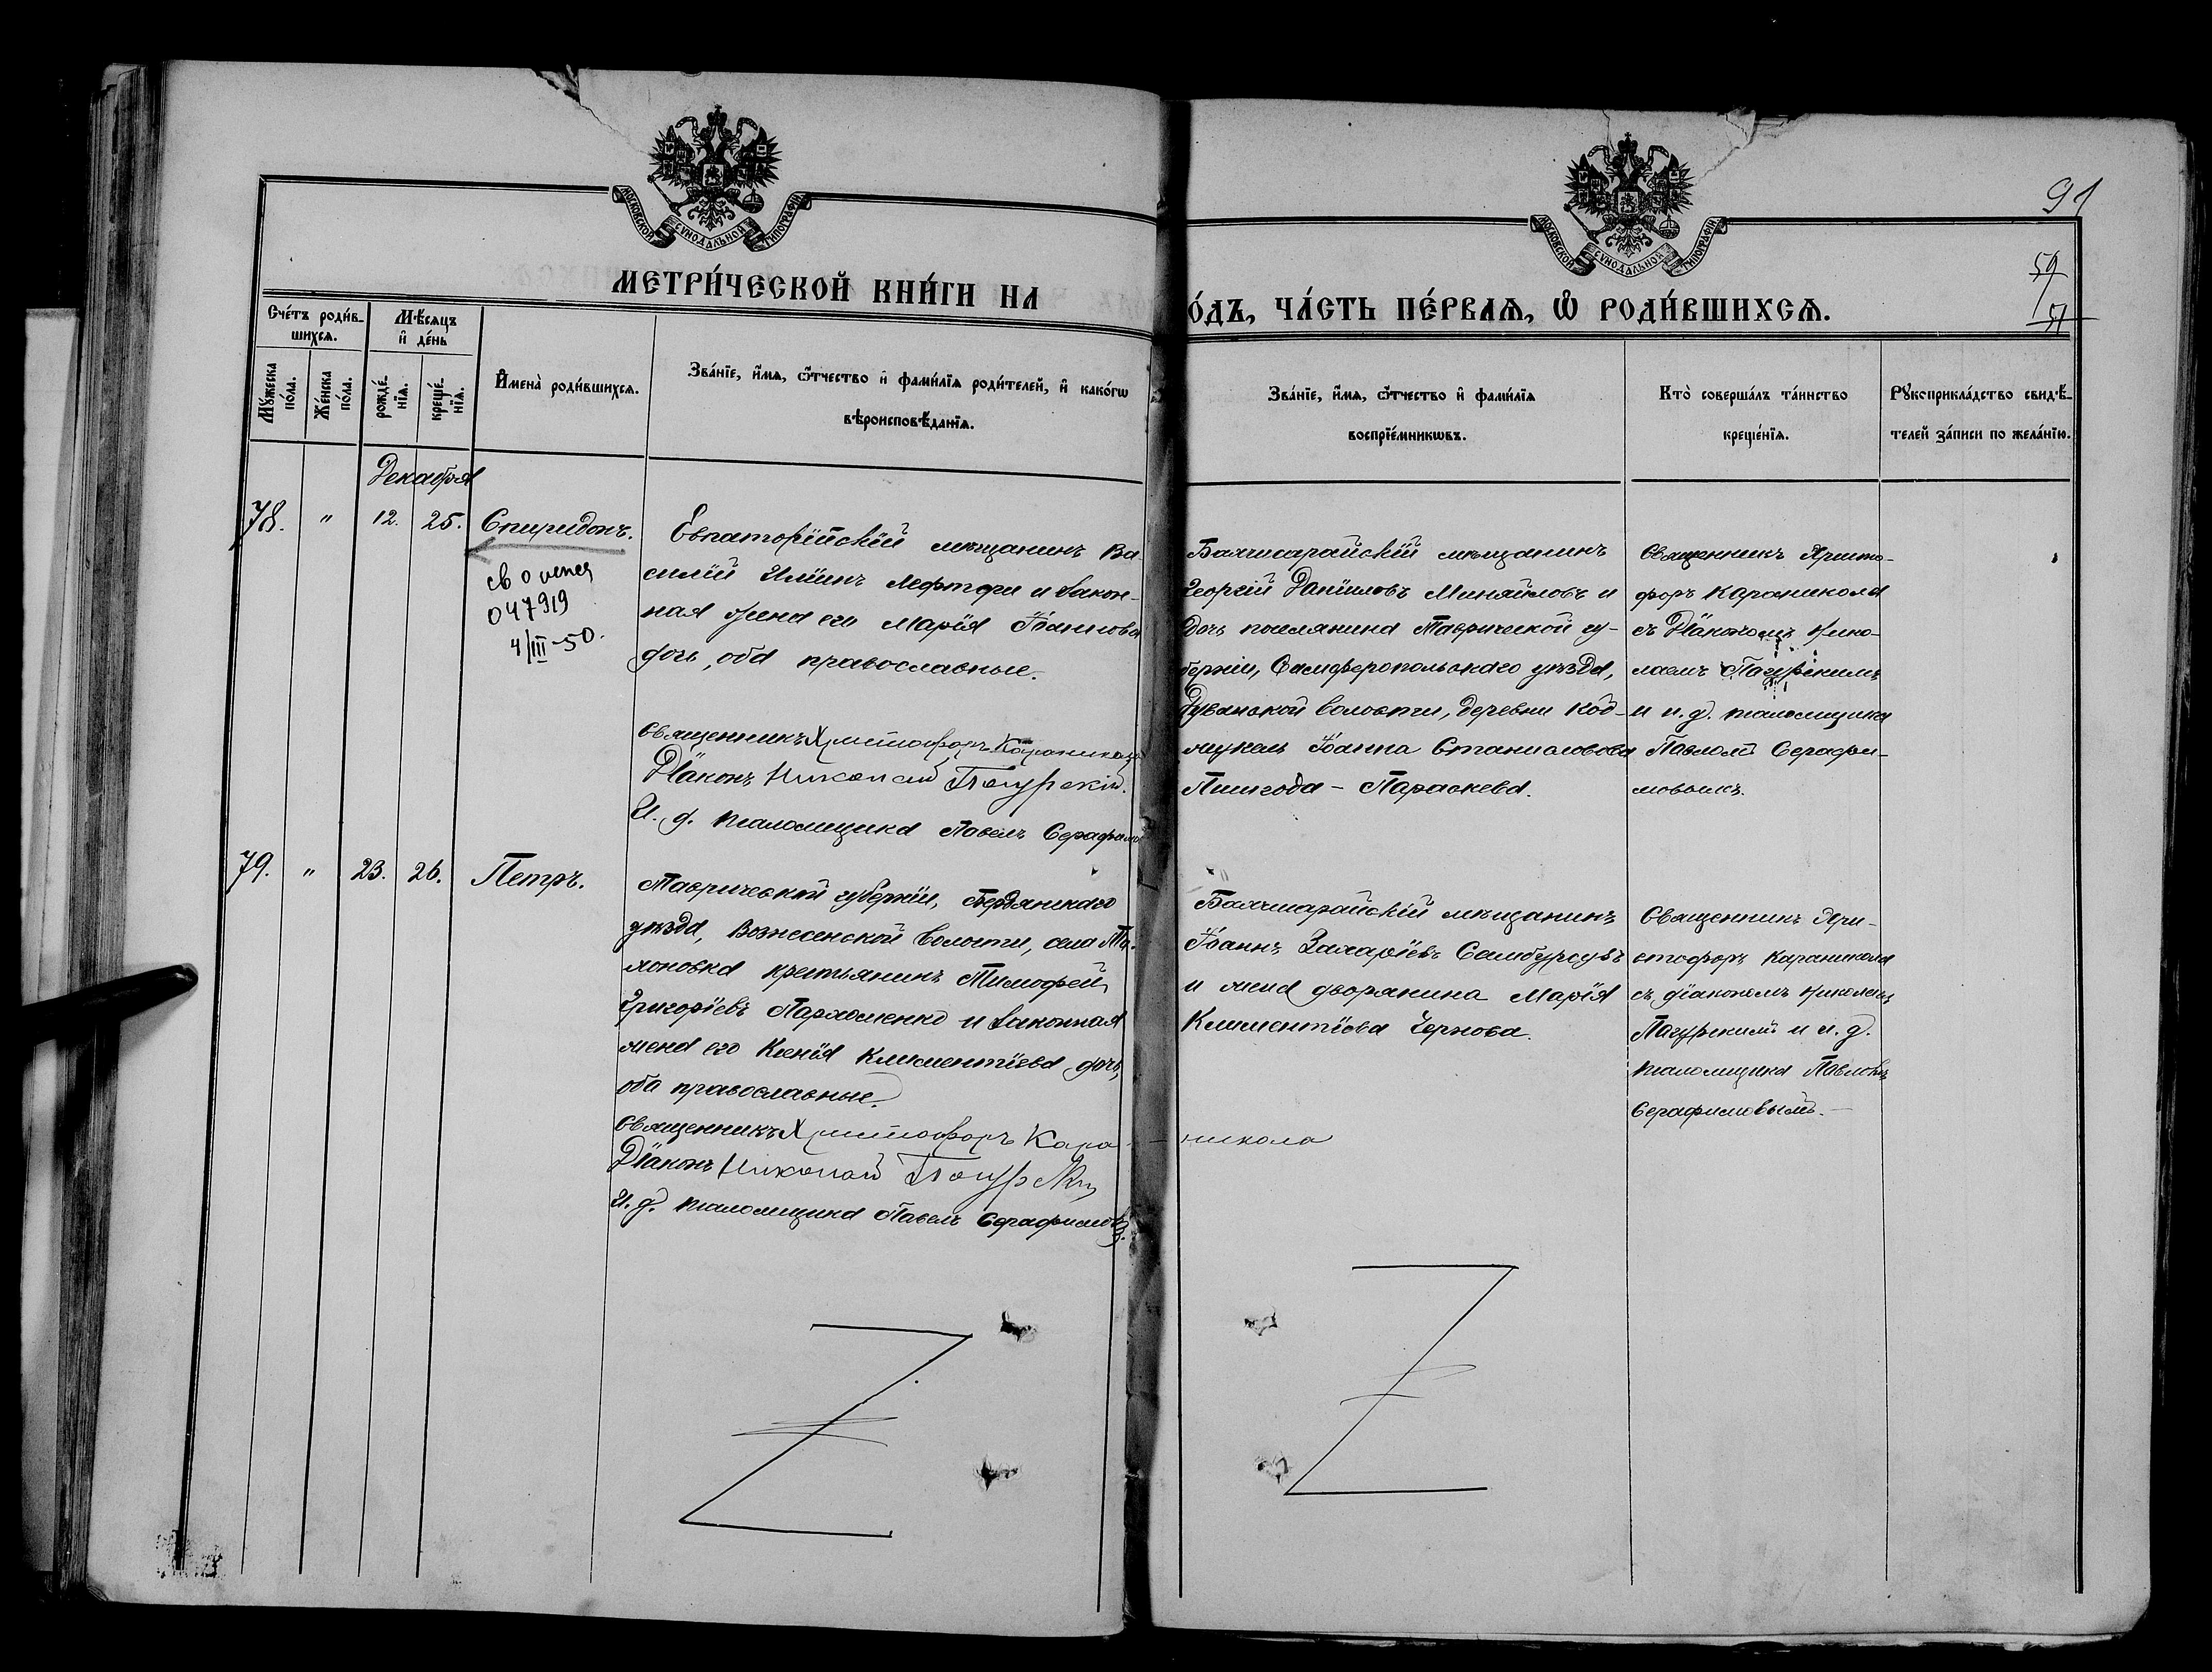 91
МОСКОВСКОЙ СѴНОДАЛЬНОЙ ТИПОГРАФІИ
МОСКОВСКОЙ СѴНОДАЛЬНОЙ ТИПОГРАФІИ
59
51
МЕТРИ́ЧЕСКОЙ КНИ́ГИ НА
О́ДЪ, ЧА́СТЬ ПЕ́РВАЯ, Ѿ РОДИ́ВШИХСЯ.
Сче́тъ роди́в-
шихся.
Мꙋжеска по́ла.
Же́нска по́ла.
Мѣ́сяцъ
и҆ де́нь
рожде́-
нїя.
креще́-
нїя.
И҆мена̀ роди́вшихся.
Зва́нїе, и҆́мя, ѻ҆́тчество и҆ фами́лїя роди́телей, и҆ како́гѡ
вѣроисповѣ́данїя.
Зва́нїе, и҆́мя, ѻ҆́тчество и҆ фами́лїя
воспрїе́мникѡвъ.
Кто̀ соверша́лъ та́инство
креще́нїя.
Рꙋкоприкла́дство свидѣ́-
телей за́писи по жела́нїю.
Декабря
78. " 12. 25. Спиридонъ.
св о
047919
4/III-50.
Евпаторійскій мѣщанинъ Ва-
силій Ильинъ Лефтери и закон-
ная жена его Марія Іоаннова
дочь, оба православные.
Священникъ Христофоръ Караникола
Діаконъ Николай
И. д. псаломщика Павелъ Серафимо
Бахчисарайскій мѣщанинъ
Георгій Даніиловъ Михайловъ и
дочь поселянина Таврической гу-
берніи, Симферопольскаго уѣзда,
волости, деревни
Іоанна Станиславова
Параскева.
Священникъ Христо-
форъ Караникола
съ Діакономъ Нико-
лаемъ
и и. д. псаломщика
Павломъ Серафи-
мовымъ.
79. " 23. 26. Петръ.
Таврической губерніи, Бердянскаго
уѣзда, Вознесенской волости, села
крестьянинъ Тимофей
Григоріевъ Пархоменко и законная
жена его Ксенія Климентіева дочь,
оба православные.
Священникъ Христофоръ Кара-никола
Діаконъ Николай
И. д. псаломщика Павелъ Серафимовъ.
Бахчисарайскій мѣщанинъ
Іоаннъ Захаріевъ
и жена дворянина Марія
Климентіева Чернова.
Священникъ Хри-
стофоръ Караникола
съ діакономъ Николаемъ
и и. д.
псаломщика Павломъ
Серафимовымъ.